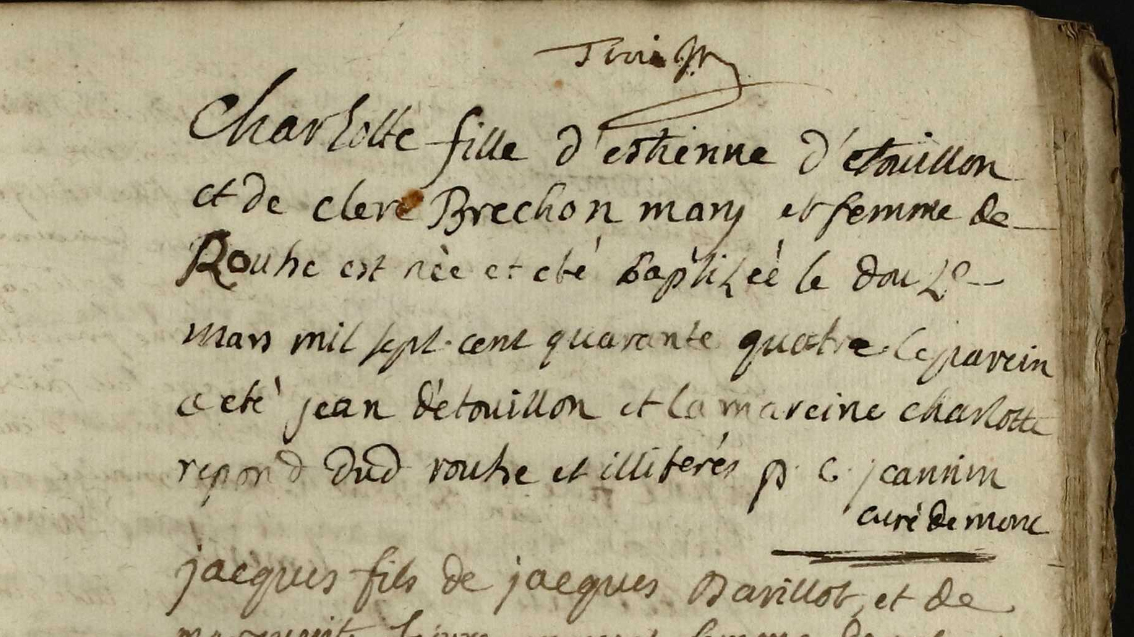 Charlotte fille d'esthienne d'etouillon
et de clere Brechon mary et femme de
Rouhe est née et eté baptizéé le douze
mars mil sept cent quarante quatre le parein
a eté jean détouillon et la mareine charlotte
repond dud rouhe et illiterés p. c. jeannin
curé de monc
jacques fils de jacques Barillot, et de